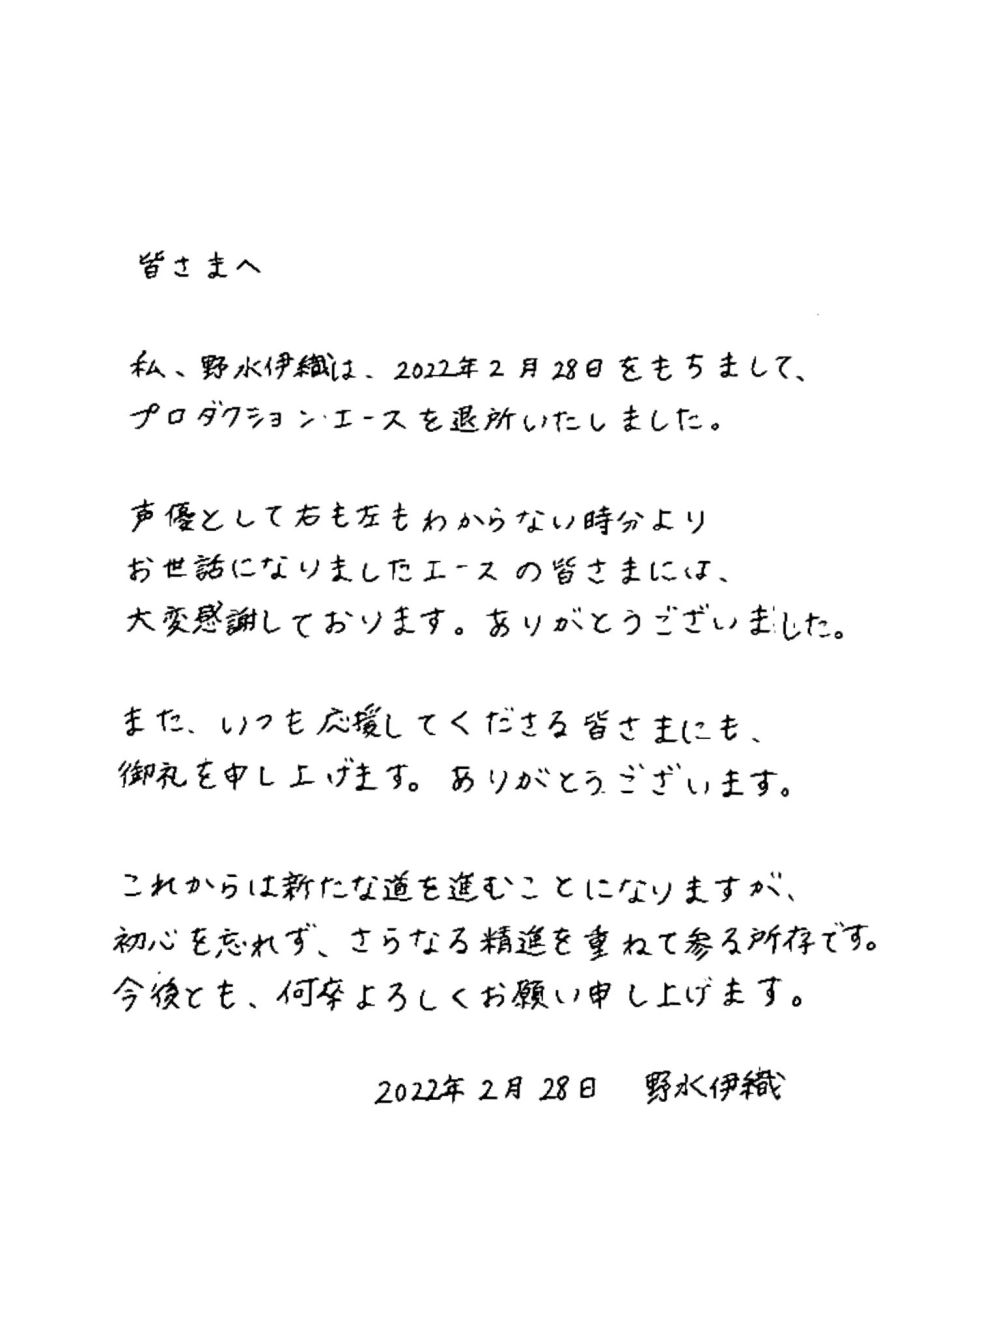 皆さまへ
私、野水伊織は、2022年2月28日をもちまして、
プロダクション・エースを退所いたしました。
声優として右も左もわからない時分より
お世話になりましたエースの皆さまには、
大変感謝しております。ありがとうございました。
また、いつも応援してくださる皆さまにも、
御礼を申し上げます。ありがとうございます。
これからは新たな道を進むことになりますが、
初心を忘れず、さらなる精進を重ねて参る所存です。
今後とも、何卒よろしくお願い申し上げます。
2022年2月28日 野水伊織